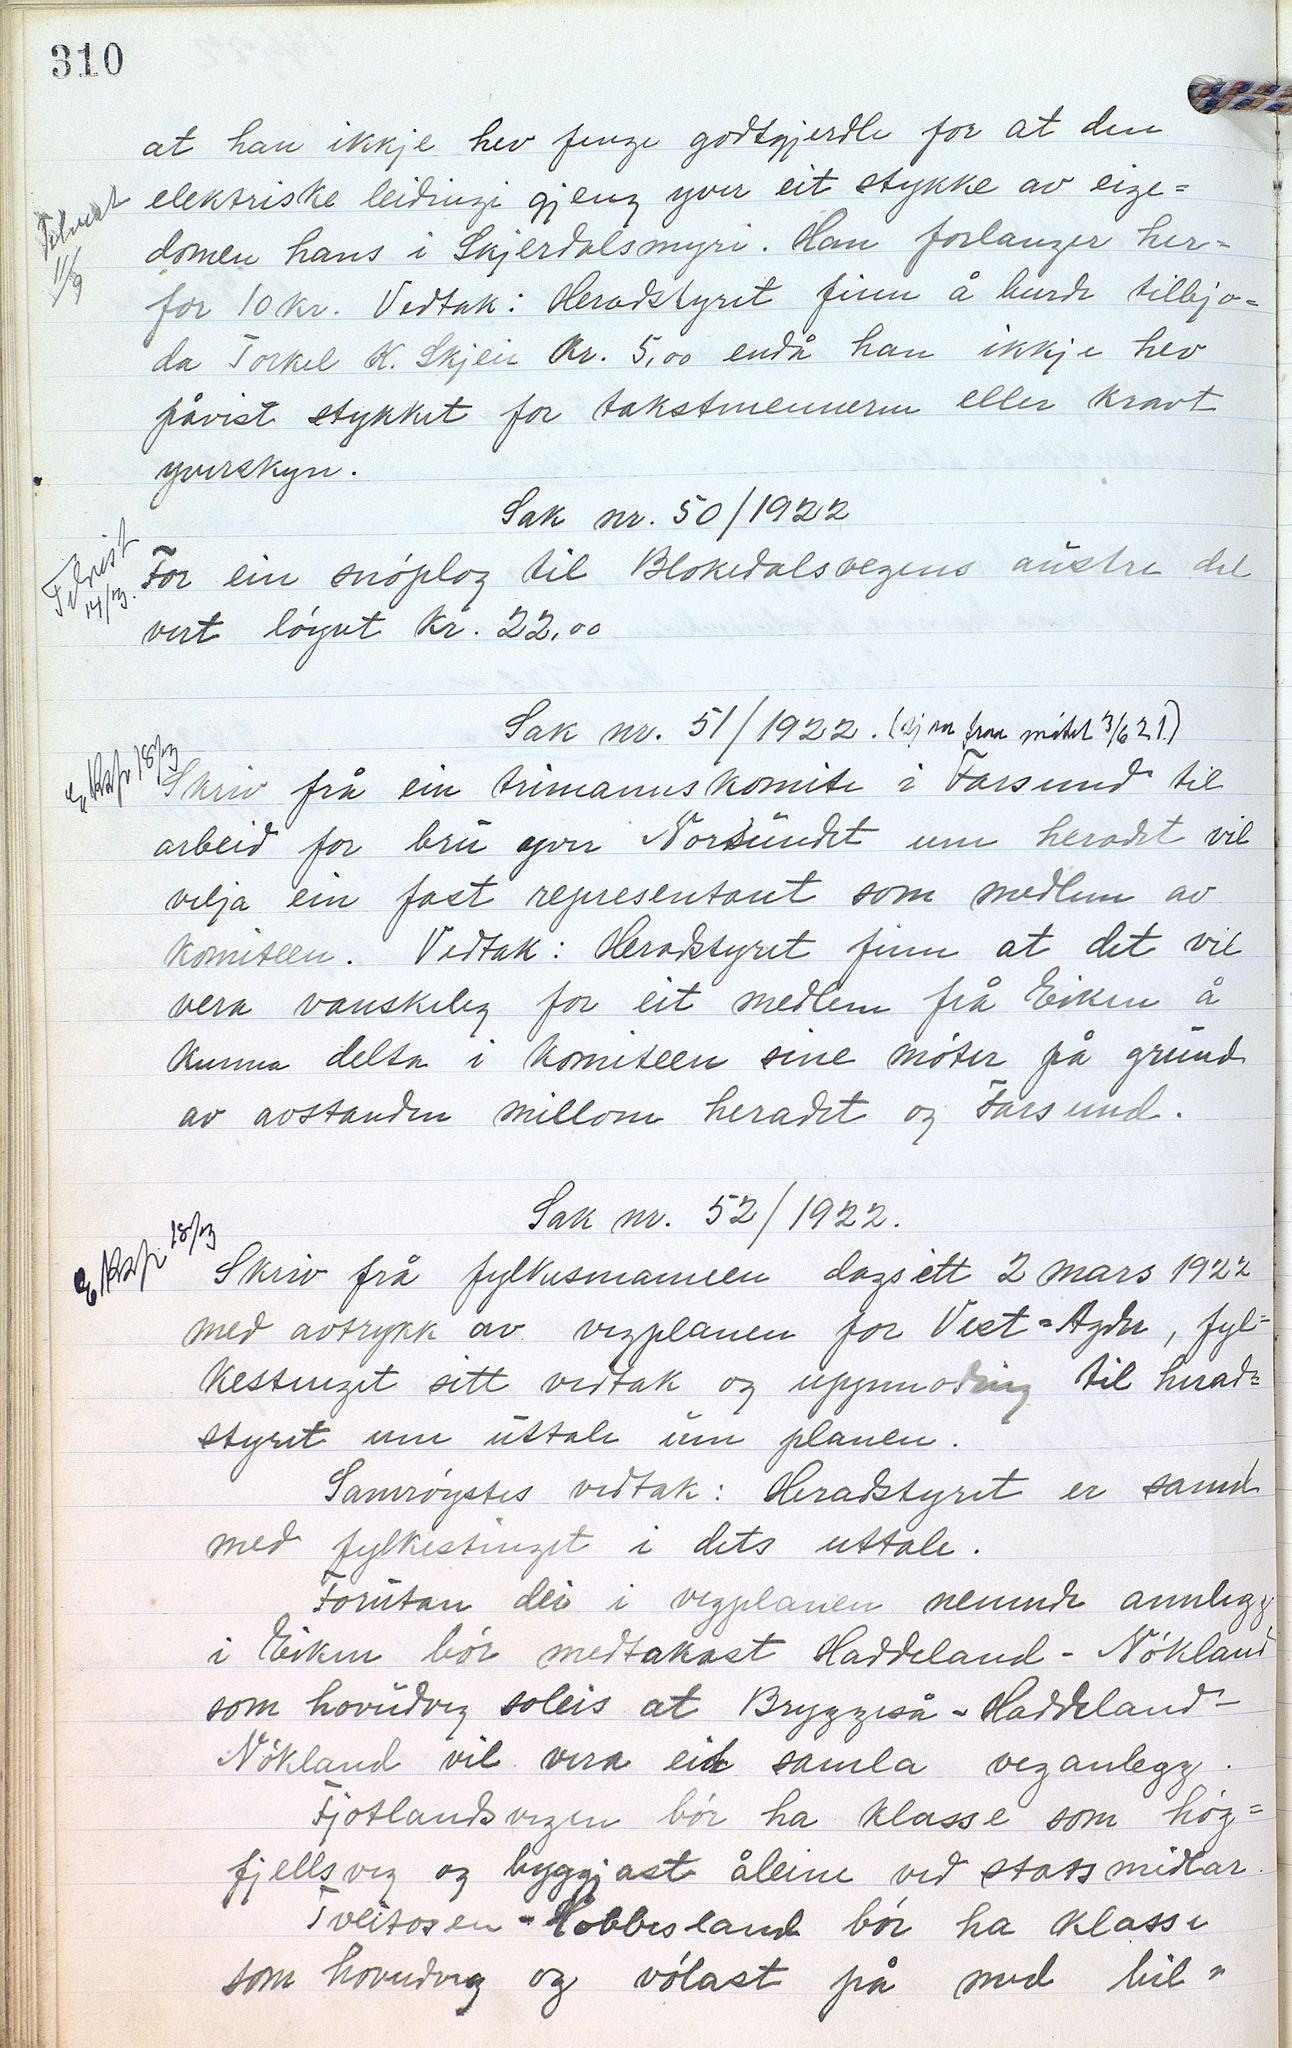 310
at han ikkje hev fenge godtgjerdle for at den
elektriske leidingi gjeng yver eit stykke av eige=
domen hans i Skjerdalsmyri. Han forlanger her=
for 10 kr. Vedtak: Heradstyret finn å burde tilbjo=
da Torkel K. Skjeie kr. 5,00 endå han ikkje hev
påvist stykket for takstmennerne eller kravt
yverskyn.
Sak nr. 50/1922
For ein snóplog til Blokedalsvegens austre del
vert lóyvt kr. 22,00
Sak nr. 51/1922. (sj sak fraa mótet 3/6 21.)
Ekssp. 18/3
Skriv frå ein trimannskomite i Farsund til
arbeid for bru yver Norsundet um heradet vil
velja ein fast representant som medlem av
komiteen. Vedtak: Heradstyret finn at det vil
vera vanskeleg for eit medlem frå Eiken å
kunna delta i komiteen sine móter på grund
av avstanden millom heradet og Farsund.
Sak nr. 52/1922.
Ekssp. 18/3
Skriv frå fylkesmannen dagsett 2 mars 1922
med avtrykk av vegplanen for Vest=Agder, fyl=
kestinget sitt vedtak og uppmoding til herad=
styret um uttale um planen.
Samróystes vedtak: Heradstyret er samd
med fylkestinget i dets uttale.
Forutan dei i vegplanen nemnde annlegg
i Eiken bór medtakast Haddeland - Nókland
som hovudveg soleis at Bryggeså - Haddeland -
Nókland vil vera eit samla veganlegg.
Fjotlandsvegen bór ha klasse som hóg=
fjellsveg og byggjast åleine ved statsmidlar.
Tveitosen - Hobbesland bór ha klasse
som hovudveg og vólast på med bil=